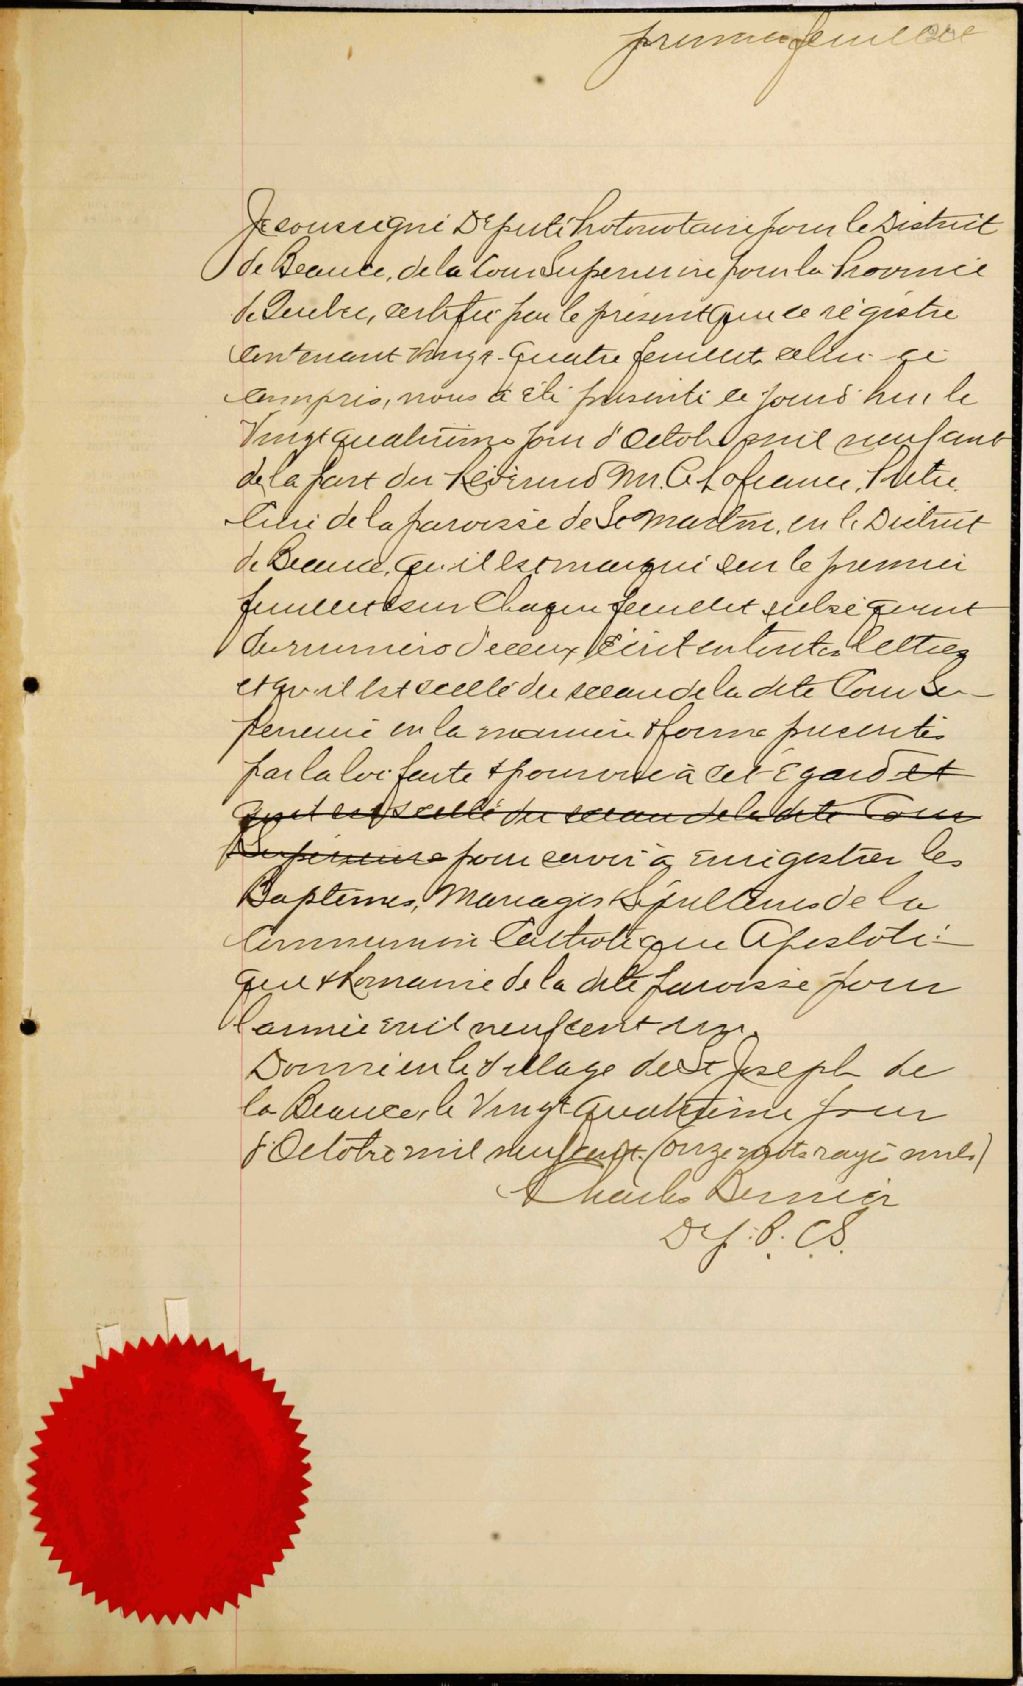 premier feuillet
Je soussigné Député Protonotaire pour le District
de Beauce, de la Cour Superieure pour la Province
de Quebec, certifie par le présent que ce régistre
contenant Vingt-quatre feuillets celui-ci
compris, nous a été présenté ce jourd'hui le
Vingt quatrième jour d'Octobre mil neuf cent
de la part du Révérend Mr. Prêtre
Curé de la paroisse de St Martin, en le District
de Beauce, qu'il est marqué sur le premier
feuillet & sur chaque feuillet subséquent
du numéro d'iceux écrit en toutes lettres
et qu'il est scellé du sceau de la dite Cour Su-
perieure en la manière & forme prescrites
par la loi faite & pourvue à cet égard et
qu'il est scellé du sceau de la dite Cour
Superieure pour servir à enrigestrer les
Baptêmes, Mariages & Sépultures de la
Communion Catholique Apostoli-
que & Romaine de la dite paroisse pour
l'année mil neuf cent un.
Donné en le Village de St Joseph de
la Beauce, le Vingt quatrième jour
d'Octobre mil neuf cent. (onze mots rayés nuls)
Charles Bernier
Dep. P. C. S.